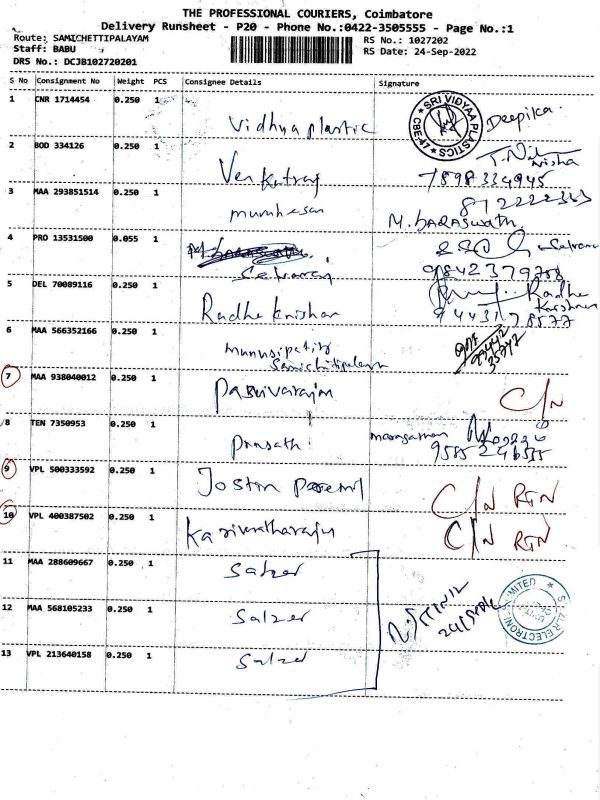 THE PROFESSIONAL COURIERS, Coimbatore
Delivery Runsheet - P20 - Phone No.:0422-3505555 - Page No.:1
Route: SAMICHETTIPALAYAM
RS No.: 1027202
Staff: BABU
RS Date: 24-Sep-2022
DRS No.: DCJB102720201
S No Consignment No Weight PCS Consignee Details Signature
1 CNR 1714454 0.250 1 Vidhya plastic SRI VIDYAA PLASTICS CBE-47 Deepika.
2 BOD 334126 0.250 1 Venkatraj Nisha
7598334945
3 MAA 293851514 0.250 1 murnhesan
M. SARASWATH
4 PRO 13531500 0.055 1
9842379758
5 DEL 70089116 0.250 1 Radhe krishna Radhe
Krishnan
9443178577
6 MAA 566352166 0.250 1
7 MAA 938040012 0.250 1 C/N
8 TEN 7350953 0.250 1 Prasath
9 VPL 500333592 0.250 1 Jostin C/N RTN
10 VPL 400387502 0.250 1 C/N RTN
11 MAA 288609667 0.250 1 Salzer
12 MAA 568105233 0.250 1 Salzer
13 VPL 213640158 0.250 1 Salzer